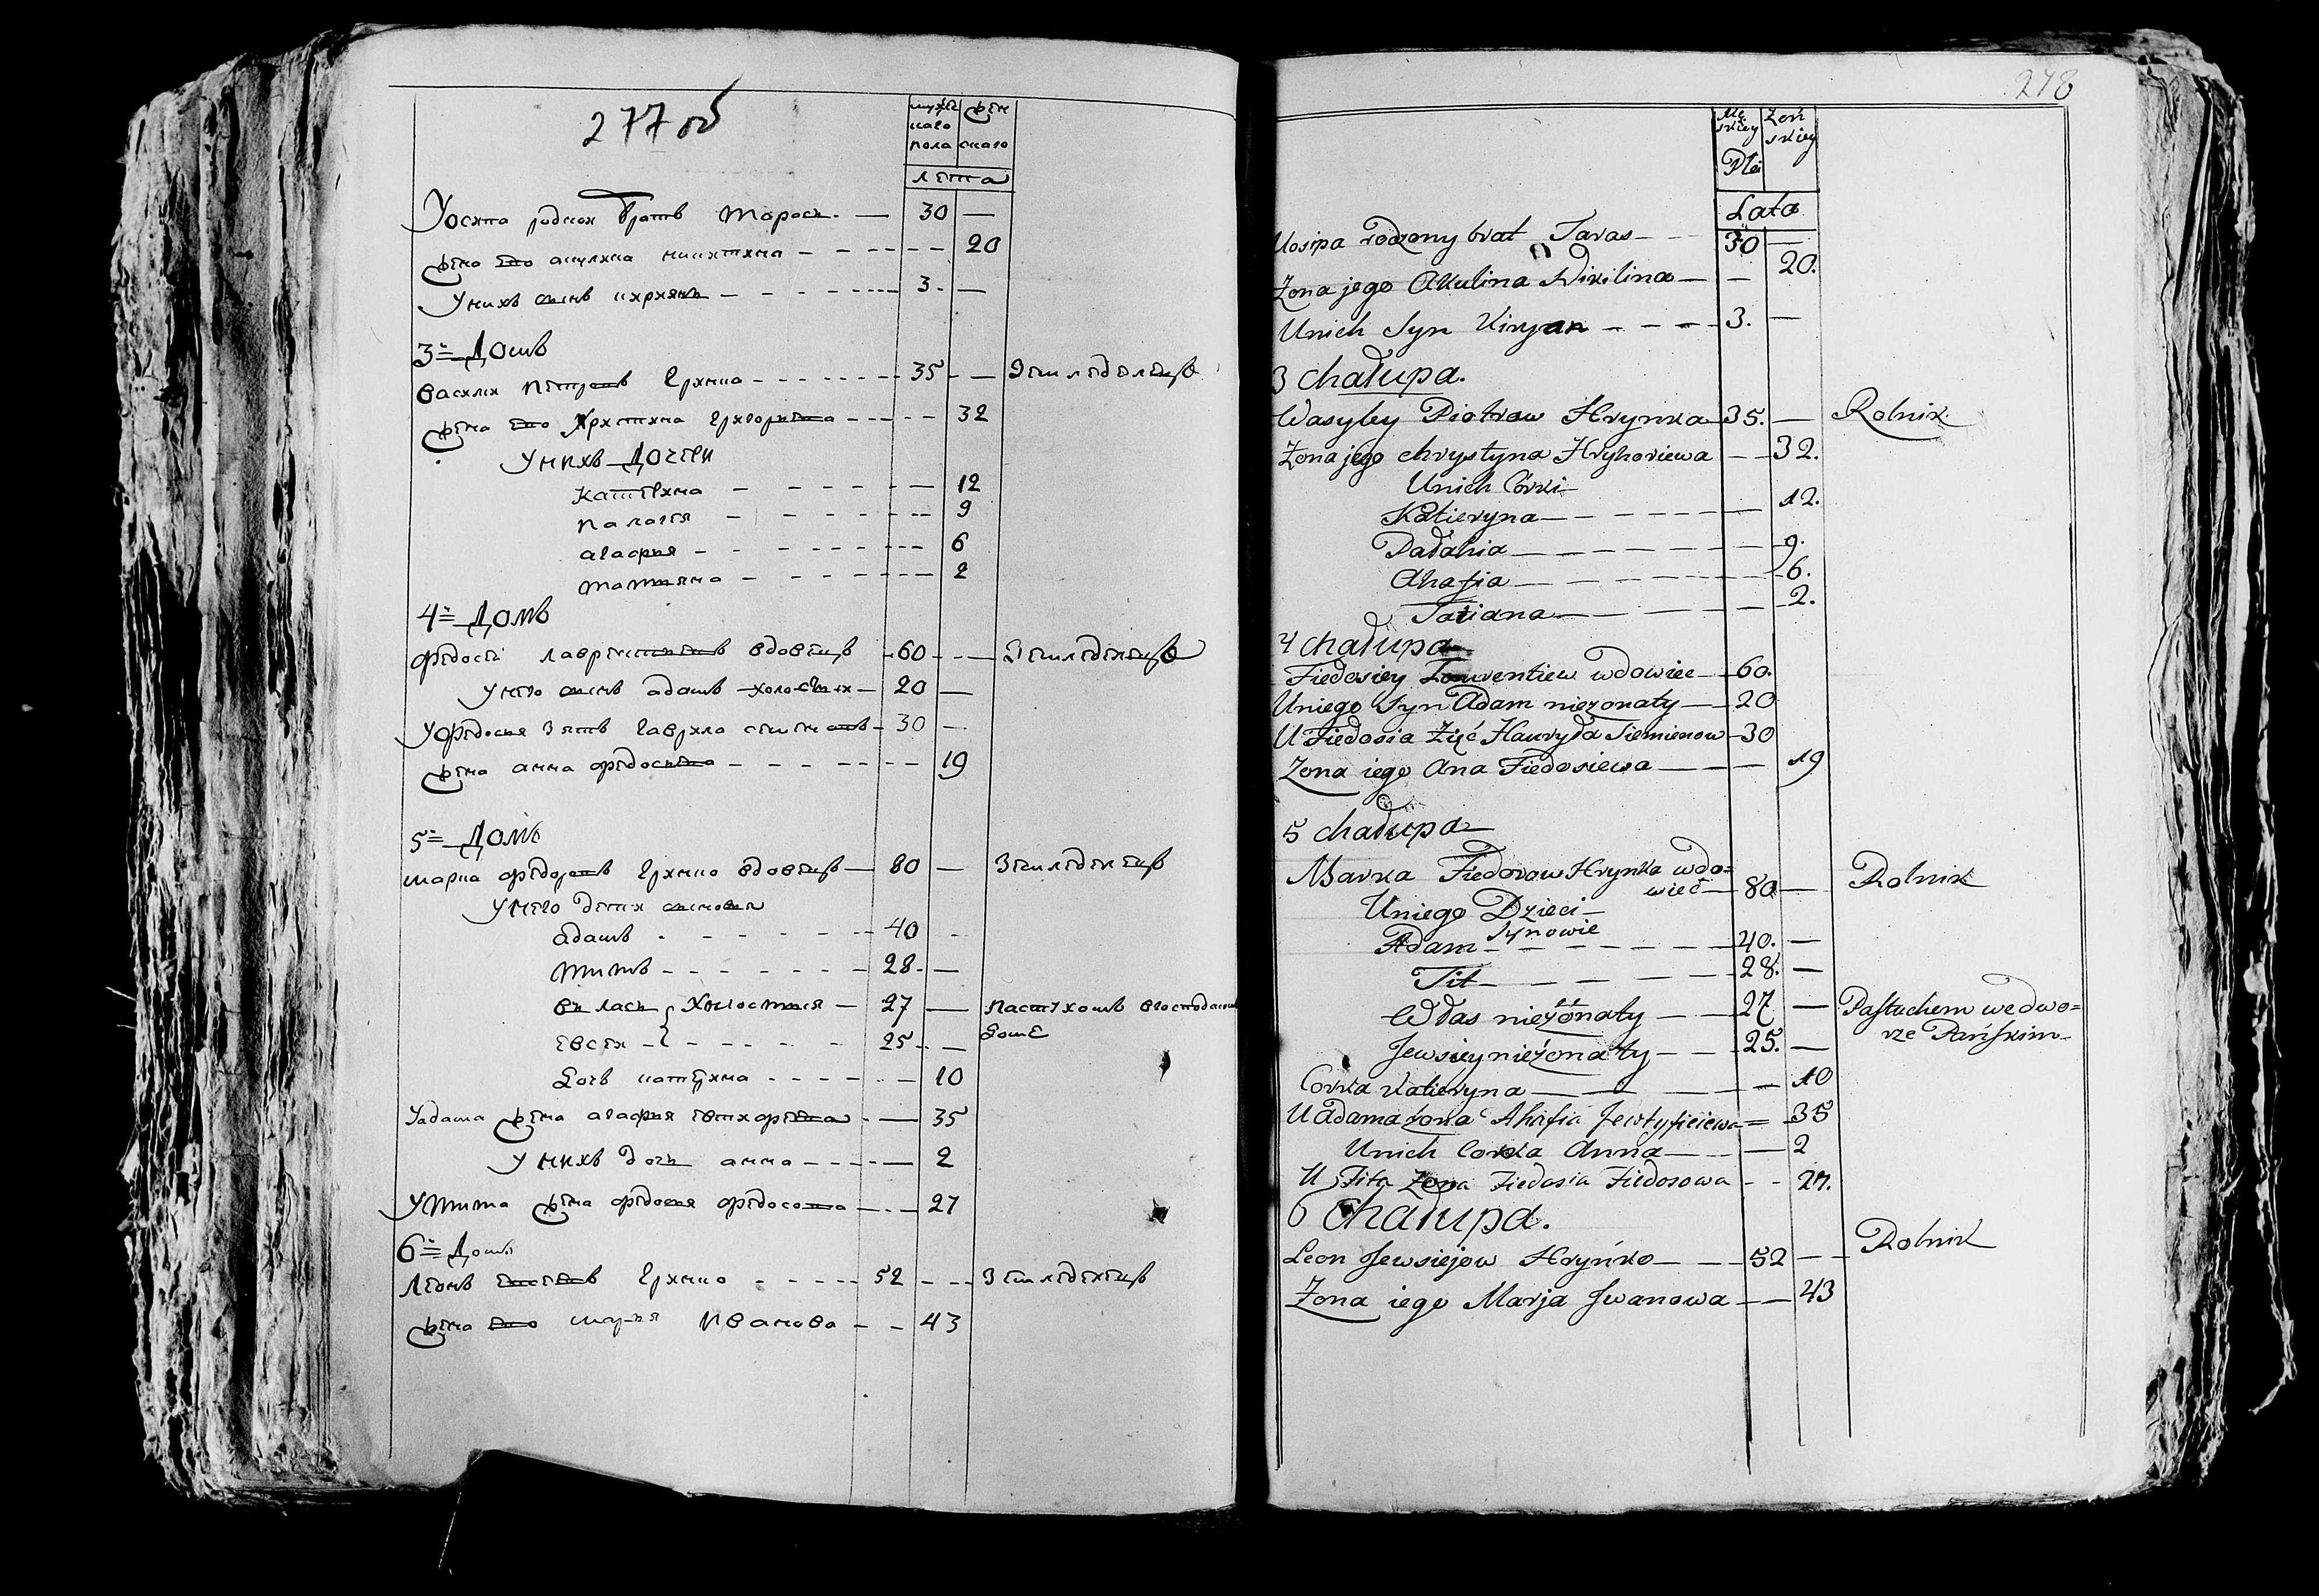 277 об
мужескаго пола
женскаго
лета
Уосипа родной братъ тарасъ. — 30 —
жена его акулина никитина — 20
Унихъ сынъ кирьянъ — 3. —
3й Домъ
василей петровъ Гринко 35 — Земледелецъ
жена его Христина григорьева 32
Унихъ Дочери
катерина — 12
палагея — 9
агафья — 6
татьяна — 2
4й Домъ
федосей лаврентьевъ вдовецъ 60 — Земледелецъ
Унего сынъ адамъ холостый — 20 —
Уфедосья зять гаврило семеновъ 30 —
жена анна федосьева — 19
5й Домъ
марка федоровъ Гринко вдовецъ — 80 — Земледелецъ
Унего дети сыновья
адамъ 40
титъ — 28. —
власъ холостыя — 27 — пастухомъ вгосподскомъ
доме
евсей — 25 —
дочь катерина — 10
Уадама жена агафья евтихофеева — 35
Унихъ дочь анна — 2
Утита жена федосья федосова — 27
6й Домъ
леонъ евсеевъ Гринко 52 — Земледелецъ
жена его марья Иванова — 43
278
Męskiey
Żeńskiey
Płci
Lata
Uosipa rodzony brat Taras — 30 —
Żona jego Akulina Nikilina — — 20.
Unich Syn Kiryan - - - 3. —
3 chałupa.
Wasyley Piotrow Hrynka 35. — Rolnik
Żona jego chrystyna Hryhoriewa — 32.
Unich Corki —
Katieryna — 12.
Pałahia — 9.
Ahafia — 6.
Tatiana — 2.
4 chałupa
Fiedosiey Lawrentiew wdowiec — 60.
Uniego Syn Adam nieżonaty — 20
U Fiedosia Zięć Hawryła Siemienow — 30
Żona iego Ana Fiedosiewa — 19
5 chałupa —
Marka Fiedorow Hrynka wdo=
wiec — 80 — Rolnik
Uniego Dzieci —
Synowie
Adam — 40. —
Tit — 28. —
Włas nieżonaty — 27 — Pastuchem we dwo=
rze Pańskim —
Jewsiey nieżonaty — 25. —
Corka Katieryna — 10
U Adama żona Ahafia Jewtyficiewa = 35
Unich Corka Anna — 2
U Tita Żona Fiedosia Fiedosowa - - 27.
6 Chałupa.
Leon Jewsiejow Hryńko — 52 — Rolnik
Żona iego Marja Iwanowa — 43